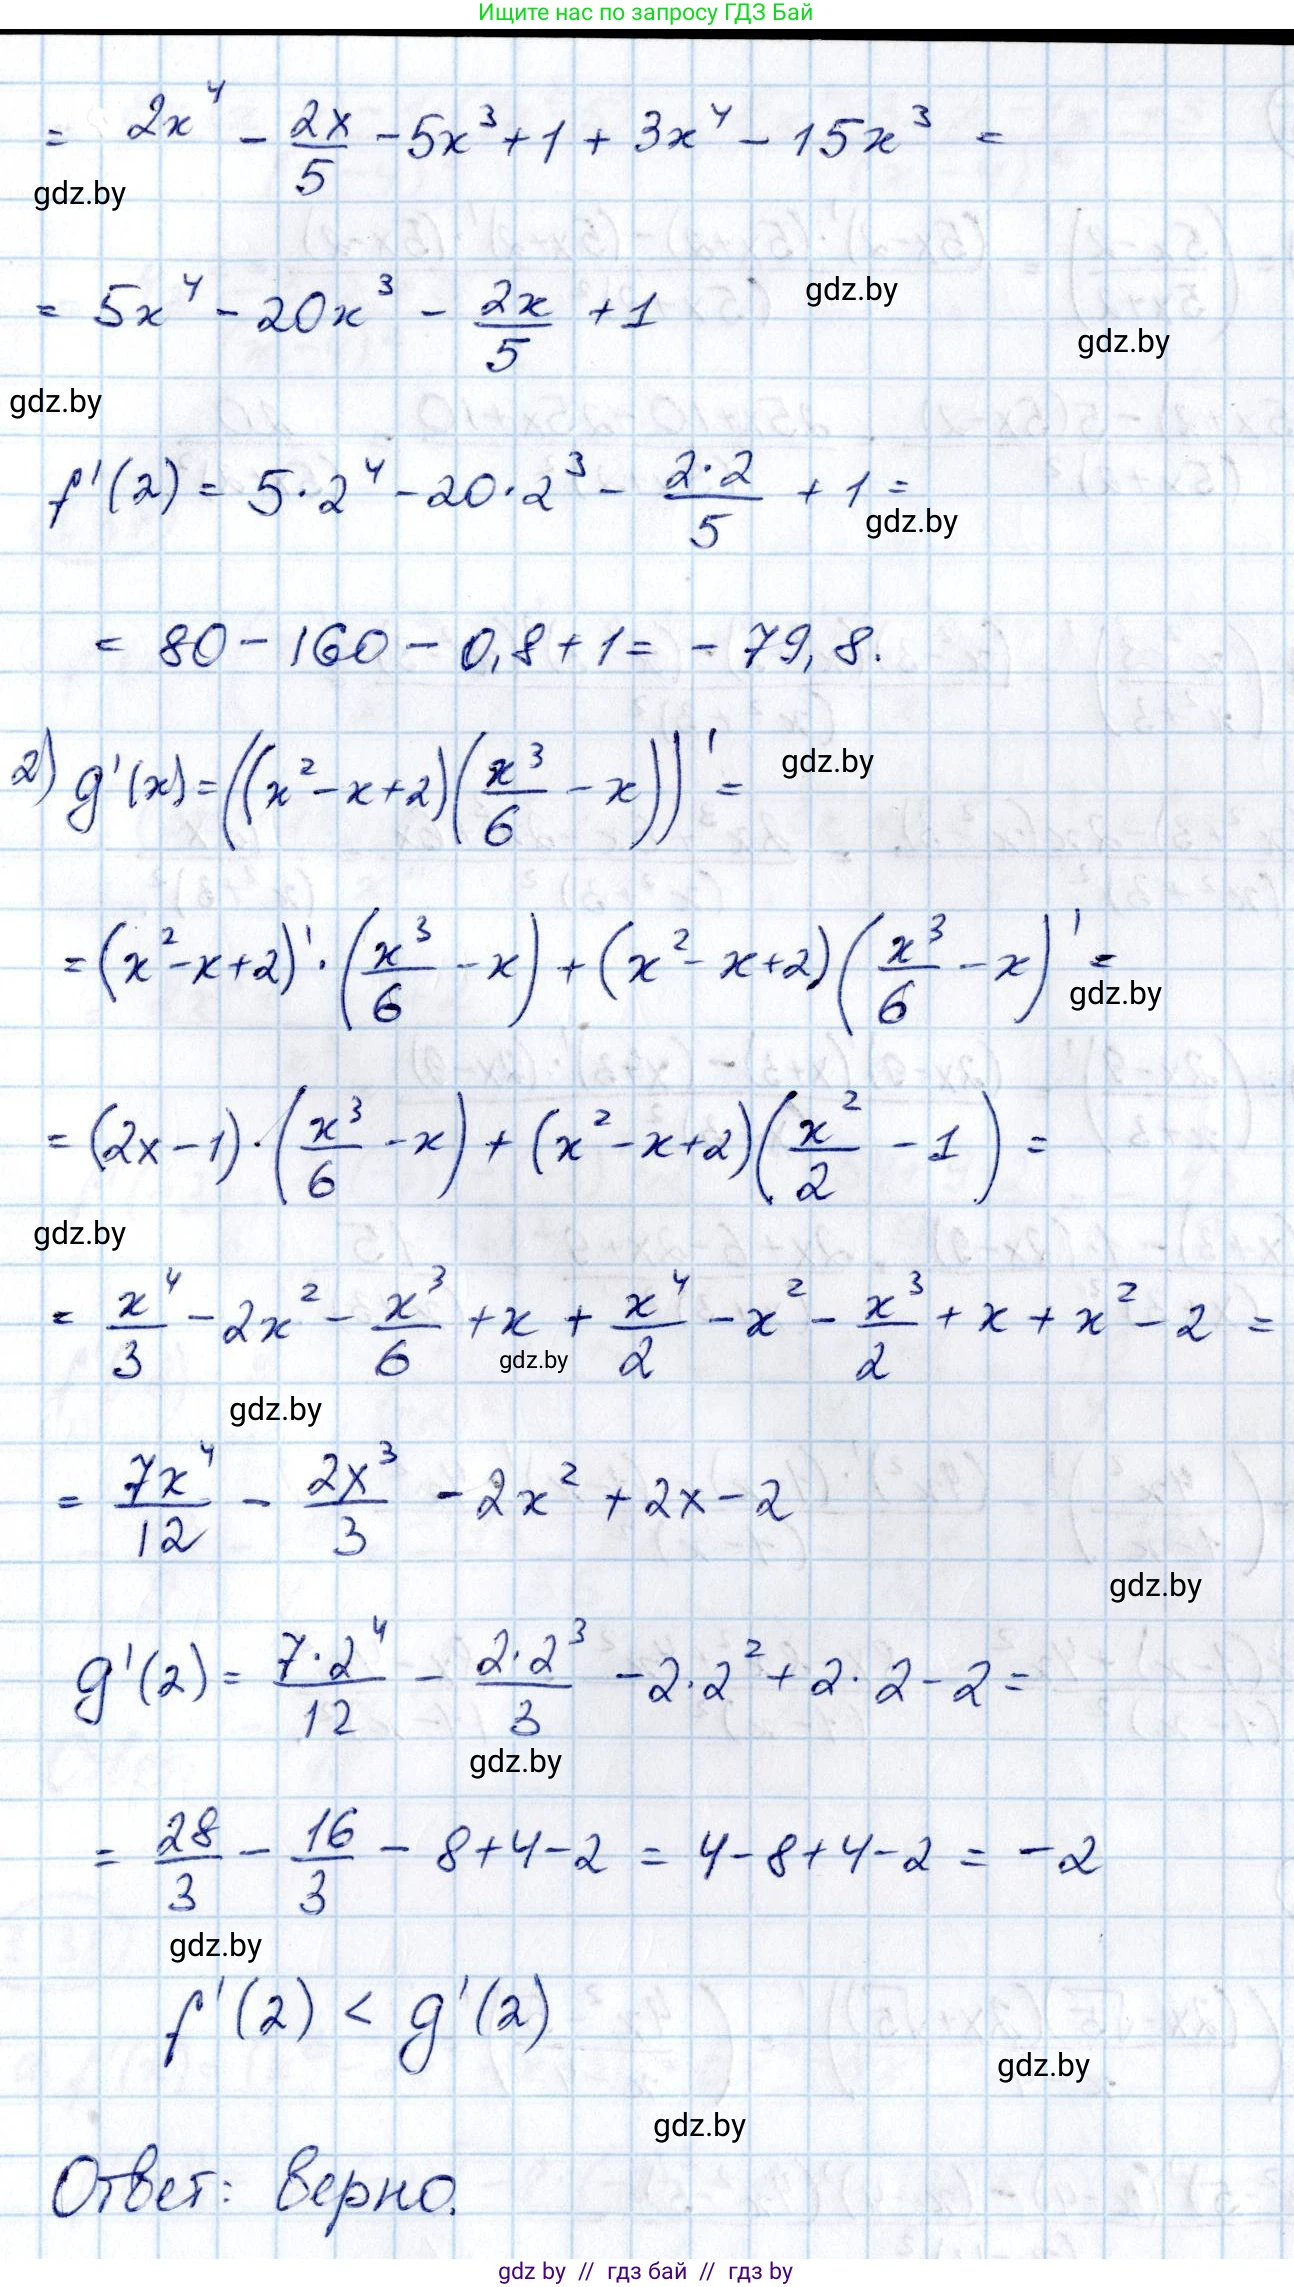 Ищите нас по запросу ГДЗ Бай
= 2x⁴ - 2x/5 - 5x³ + 1 + 3x⁴ - 15x³ =
gdz.by
= 5x⁴ - 20x³ - 2x/5 + 1
gdz.by
gdz.by
gdz.by
f'(2) = 5·2⁴ - 20·2³ - 2·2/5 + 1 =
gdz.by
= 80 - 160 - 0,8 + 1 = - 79,8.
2) g'(x) = ((x² - x + 2)(x³/6 - x))' =
gdz.by
= (x² - x + 2)'·(x³/6 - x) + (x² - x + 2)(x³/6 - x)' =
gdz.by
= (2x - 1)·(x³/6 - x) + (x² - x + 2)(x²/2 - 1) =
gdz.by
= x⁴/3 - 2x² - x³/6 + x + x⁴/2 - x² - x³/2 + x + x² - 2 =
gdz.by
gdz.by
= 7x⁴/12 - 2x³/3 - 2x² + 2x - 2
gdz.by
g'(2) = 7·2⁴/12 - 2·2³/3 - 2·2² + 2·2 - 2 =
gdz.by
= 28/3 - 16/3 - 8 + 4 - 2 = 4 - 8 + 4 - 2 = - 2
gdz.by
f'(2) < g'(2)
gdz.by
gdz.by
Ответ: верно.
gdz by // гдз бай // гдз by